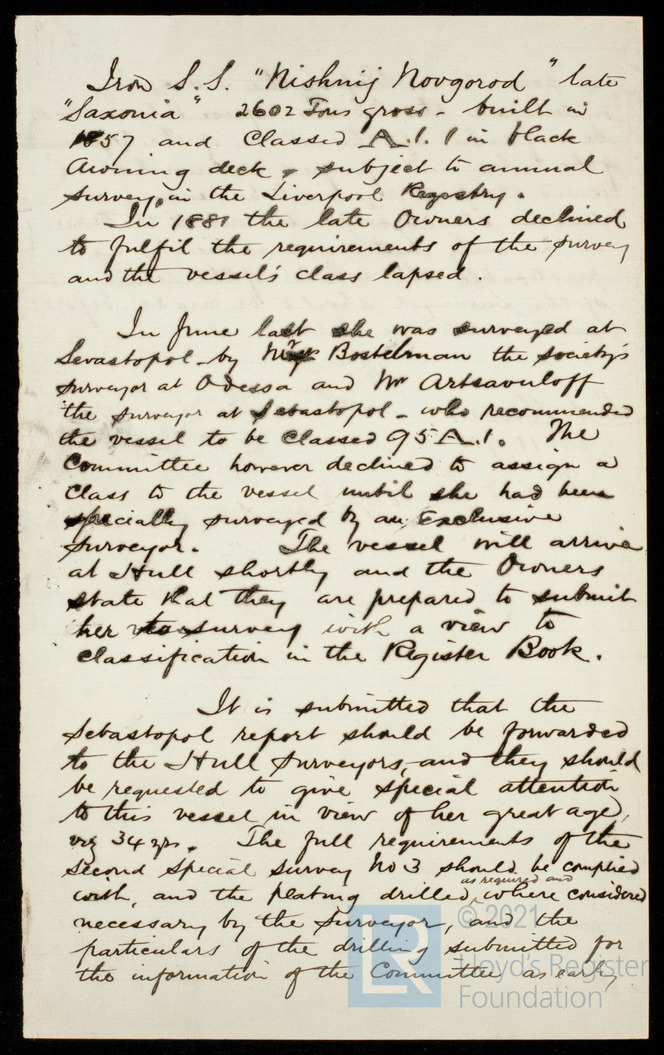 Iron S.S. "Nishnij Novgorod" late
"Saxonia" 2602 Tons gross - built in
1857 and Classed A.1. 1 in black
Awning deck, subject to annual
survey, in the Liverpool Registry.
In 1881 the late Owners declined
to fulfil the requirements of the survey
and the vessel's class lapsed.
In June last she was surveyed at
Sevastopol by Bostelman the society's
surveyor at Odessa and Mr Artsavuloff
the surveyor at Sebastopol - who recommended
the vessel to be classed 95 A.1. The
Committee however declined to assign a
Class to the vessel until she had been
specially surveyed by an Exclusive
surveyor. The vessel will arrive
at Hull shortly and the Owners
state that they are prepared to submit
her to survey with a view to
classification in the Register Book.
It is submitted that the
Sebastopol report should be forwarded
to the Hull Surveyors, and they should
be requested to give special attention
to this vessel in view of her great age,
viz 34 yrs. The full requirements of the
second special survey No 3 should be complied
as required and
with, and the plating drilled, where considered
necessary by the Surveyor, and the
particulars of the drilling submitted for
the information of the Committee as early
LR
© 2021
Lloyd's Register
Foundation